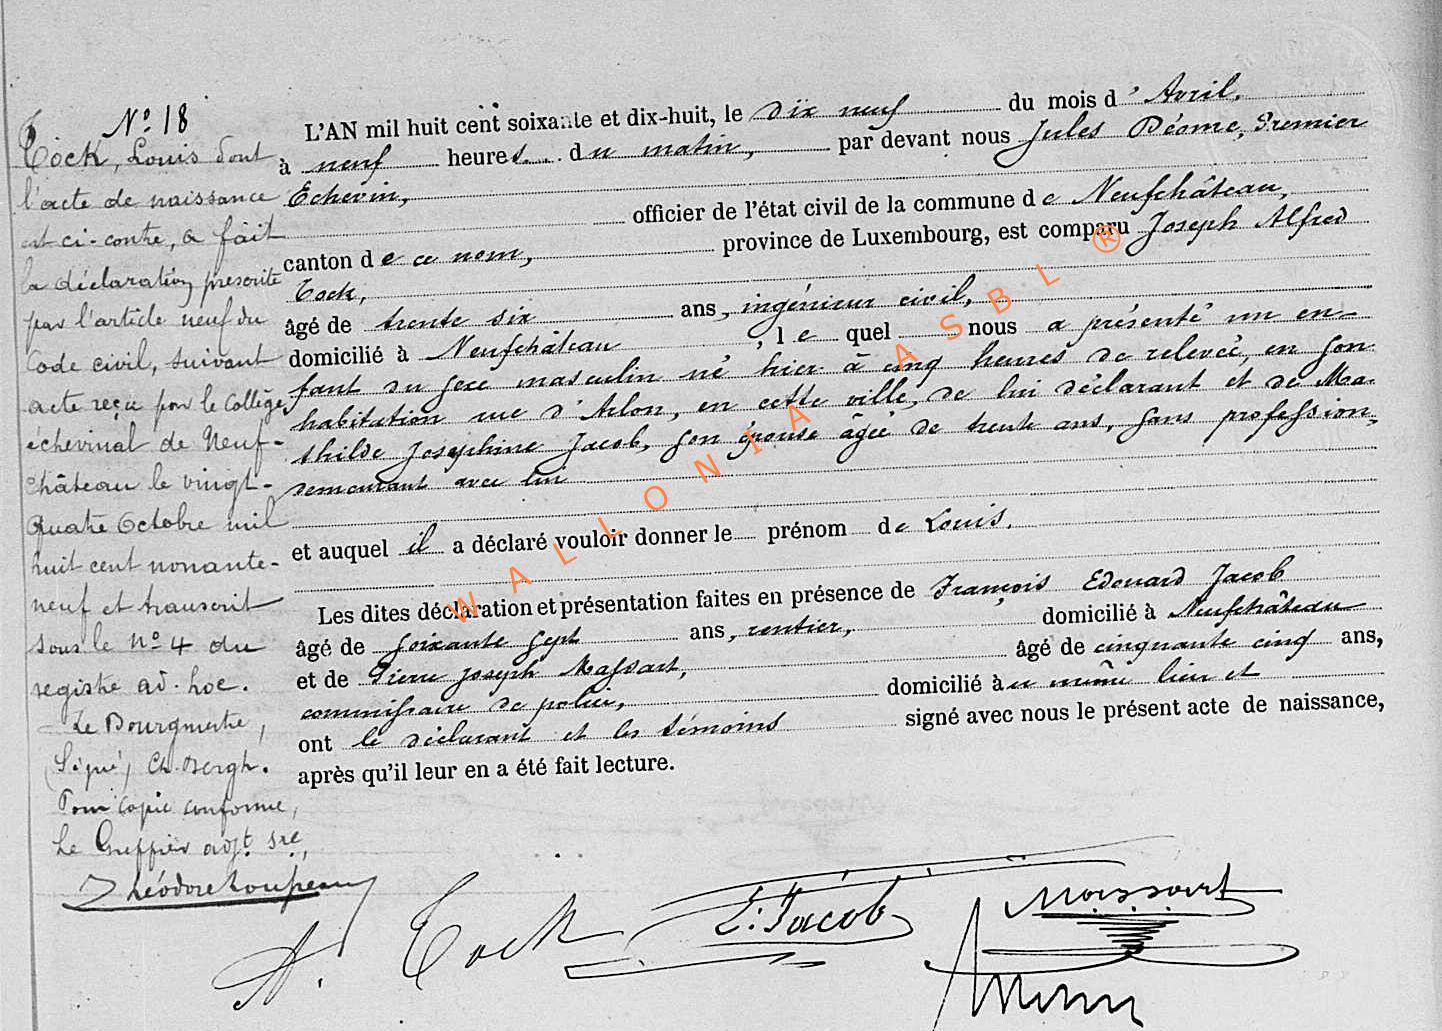 Nº 18
Tock, Louis dont
l'acte de naissance
est ci-contre, a fait
la déclaration prescrite
par l'article neuf du
Code civil, suivant
acte reçu par le Collège
échevinal de Neuf-
château le vingt-
quatre Octobre mil
huit cent nonante-
neuf et transcrit
sous le nº 4 du
registre ad-hoc.
Le Bourgmestre,
(Signé) Ch. Bergh.
Pour copie conforme,
Le Greffier adjt. sre,
Théodore
L'AN mil huit cent soixante et dix-huit, le dix neuf du mois d'Avril,
à neuf heures du matin, par devant nous Jules Déome, Premier
Echevin,
officier de l'état civil de la commune de Neufchâteau,
canton de ce nom, province de Luxembourg, est comparu Joseph Alfred
Tock,
âgé de trente six ans, ingénieur civil,
domicilié à Neufchâteau, lequel nous a présenté un en-
fant du sexe masculin né hier à cinq heures de relevée, en son
habitation rue d'Arlon, en cette ville, de lui déclarant et de Ma-
thilde Joséphine Jacob, son épouse âgée de trente ans, sans profession,
demeurant avec lui
et auquel il a déclaré vouloir donner le prénom de Louis.
Les dites déclaration et présentation faites en présence de François Edouard Jacob
âgé de soixante sept ans, rentier, domicilié à Neufchâteau
et de Pierre Joseph Massart, âgé de cinquante cinq ans,
commissaire de police, domicilié au même lieu et
ont le déclarant et les témoins signé avec nous le présent acte de naissance,
après qu'il leur en a été fait lecture.
A. Tock E. Jacob Massart
WALLONIA ASBL ®